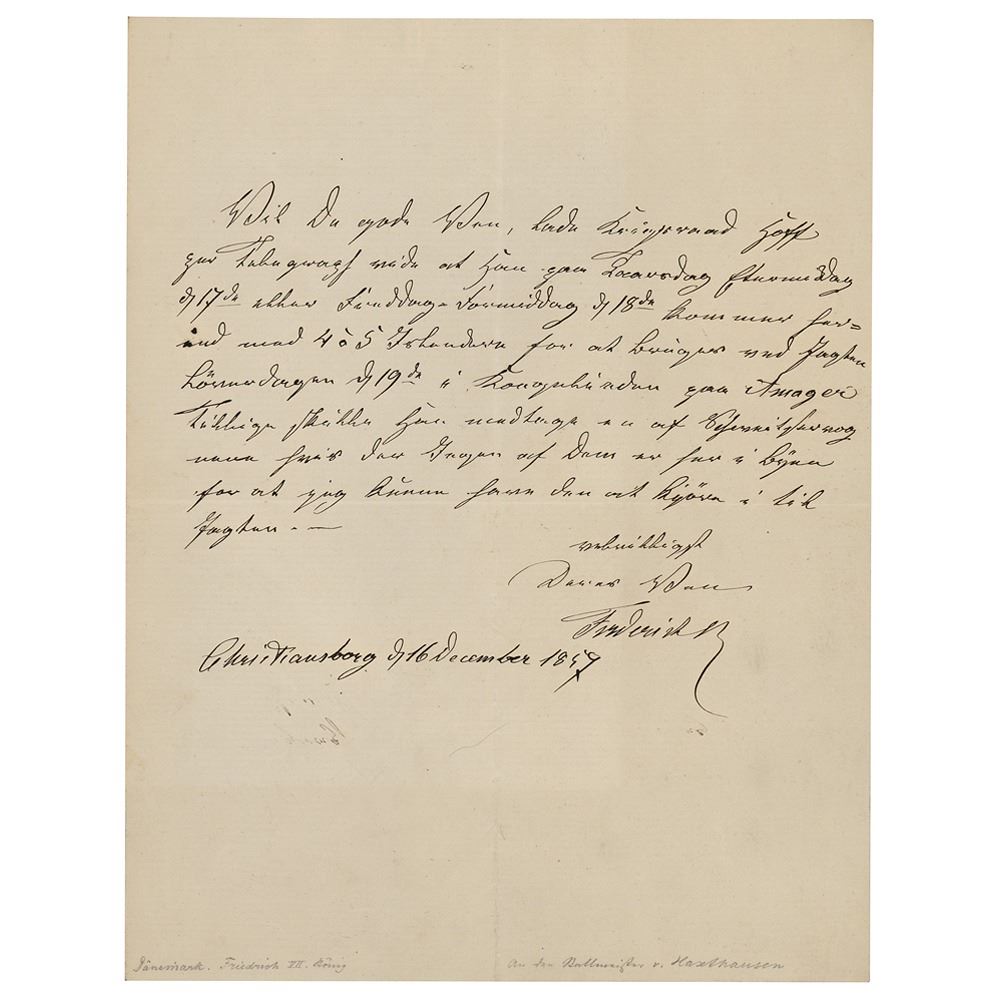 Vil De gode Ven, lade Krigsraad Hoff
per Telegraph vide at Han paa Torsdag Eftermiddag
d 17de eller Freddag-Formiddag d 18de kommer her=
ind med 4 à 5 Islændere for at bruges ved Jagten
Löverdagen d 19de i Kongelunden paa Amager
Tillige skulle Han medtage en af Schweitservog
nene hvis der Ingen af Dem er her i Byen
for at jeg kunne have den at kjöre i til
Jagten. —
velvilligst
Deres Ven
Frederik R
Christiansborg d 16 December 1857
Dänemark. Friedrich VII. König
An den Stallmeister v. Haxthausen